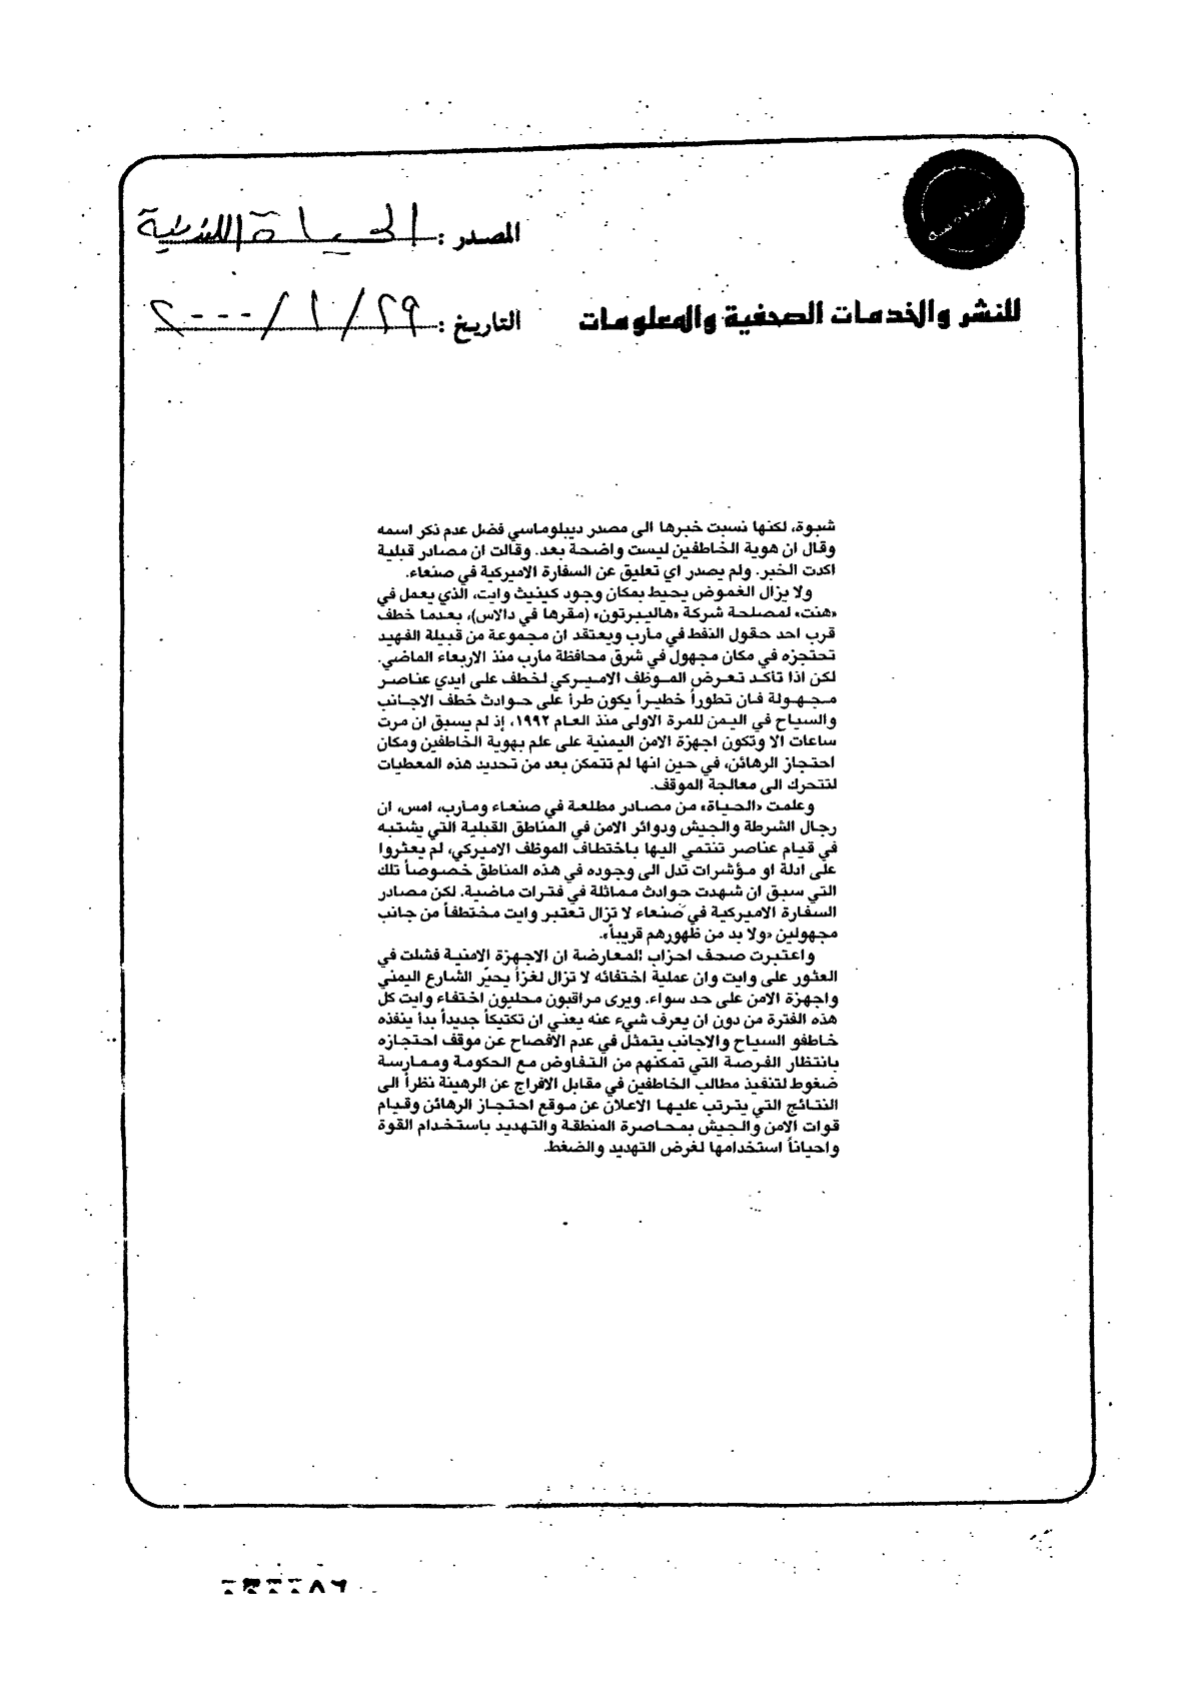 المصدر : الحياة اللندنية
للنشر والخدمات الصحفية والمعلومات
التاريخ : ٢٩ / ١ / ٢٠٠٠
شبوة، لكنها نسبت خبرها الى مصدر ديبلوماسي فضل عدم ذكر اسمه
وقال ان هوية الخاطفين ليست واضحة بعد. وقالت ان مصادر قبلية
اكدت الخبر. ولم يصدر اي تعليق عن السفارة الاميركية في صنعاء.
ولا يزال الغموض يحيط بمكان وجود كينيث وايت، الذي يعمل في
«هنت» لمصلحة شركة «هاليبرتون» (مقرها في دالاس)، بعدما خطف
قرب احد حقول النفط في مأرب ويعتقد ان مجموعة من قبيلة الفهيد
تحتجزه في مكان مجهول في شرق محافظة مأرب منذ الاربعاء الماضي.
لكن اذا تأكد تعرض الموظف الاميركي لخطف على ايدي عناصر
مجهولة فان تطوراً خطيراً يكون طرأ على حوادث خطف الاجانب
والسياح في اليمن للمرة الاولى منذ العام ١٩٩٢، إذ لم يسبق ان مرت
ساعات الا وتكون اجهزة الامن اليمنية على علم بهوية الخاطفين ومكان
احتجاز الرهائن، في حين انها لم تتمكن بعد من تحديد هذه المعطيات
لتتحرك الى معالجة الموقف.
وعلمت «الحياة» من مصادر مطلعة في صنعاء ومأرب، امس، ان
رجال الشرطة والجيش ودوائر الامن في المناطق القبلية التي يشتبه
في قيام عناصر تنتمي اليها باختطاف الموظف الاميركي، لم يعثروا
على ادلة او مؤشرات تدل الى وجوده في هذه المناطق خصوصاً تلك
التي سبق ان شهدت حوادث مماثلة في فترات ماضية. لكن مصادر
السفارة الاميركية في صنعاء لا تزال تعتبر وايت مختطفاً من جانب
مجهولين «ولا بد من ظهورهم قريباً».
واعتبرت صحف احزاب المعارضة ان الاجهزة الامنية فشلت في
العثور على وايت وان عملية اختفائه لا تزال لغزاً يحيّر الشارع اليمني
واجهزة الامن على حد سواء. ويرى مراقبون محليون اختفاء وايت كل
هذه الفترة من دون ان يعرف شيء عنه يعني ان تكتيكاً جديداً بدأ ينفذه
خاطفو السياح والاجانب يتمثل في عدم الافصاح عن موقف احتجازه
بانتظار الفرصة التي تمكنهم من التفاوض مع الحكومة وممارسة
ضغوط لتنفيذ مطالب الخاطفين في مقابل الافراج عن الرهينة نظراً الى
النتائج التي يترتب عليها الاعلان عن موقع احتجاز الرهائن وقيام
قوات الامن والجيش بمحاصرة المنطقة والتهديد باستخدام القوة
واحياناً استخدامها لغرض التهديد والضغط.